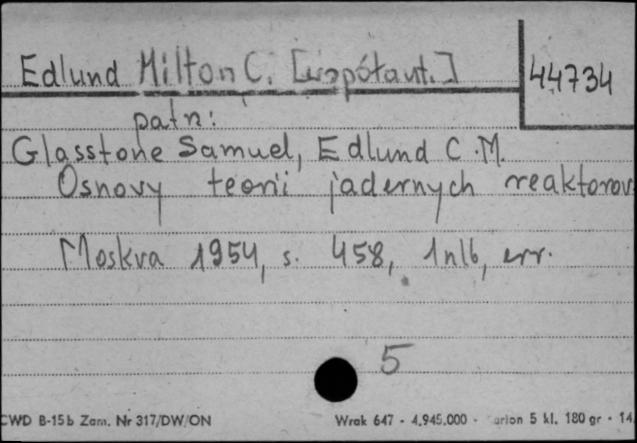 Edlund Milton C. [współaut.]
44734
patrz:
Glasstone Samuel, Edlund C.M.
Osnovy teorii jadernych reaktorov
Moskva 1954, s. 458, 1nlb, err.
5
CWD B-15b Zam. Nr 317/DW/ON
Wrak 647 - 4.945.000 - 5 kl. 180 gr - 14